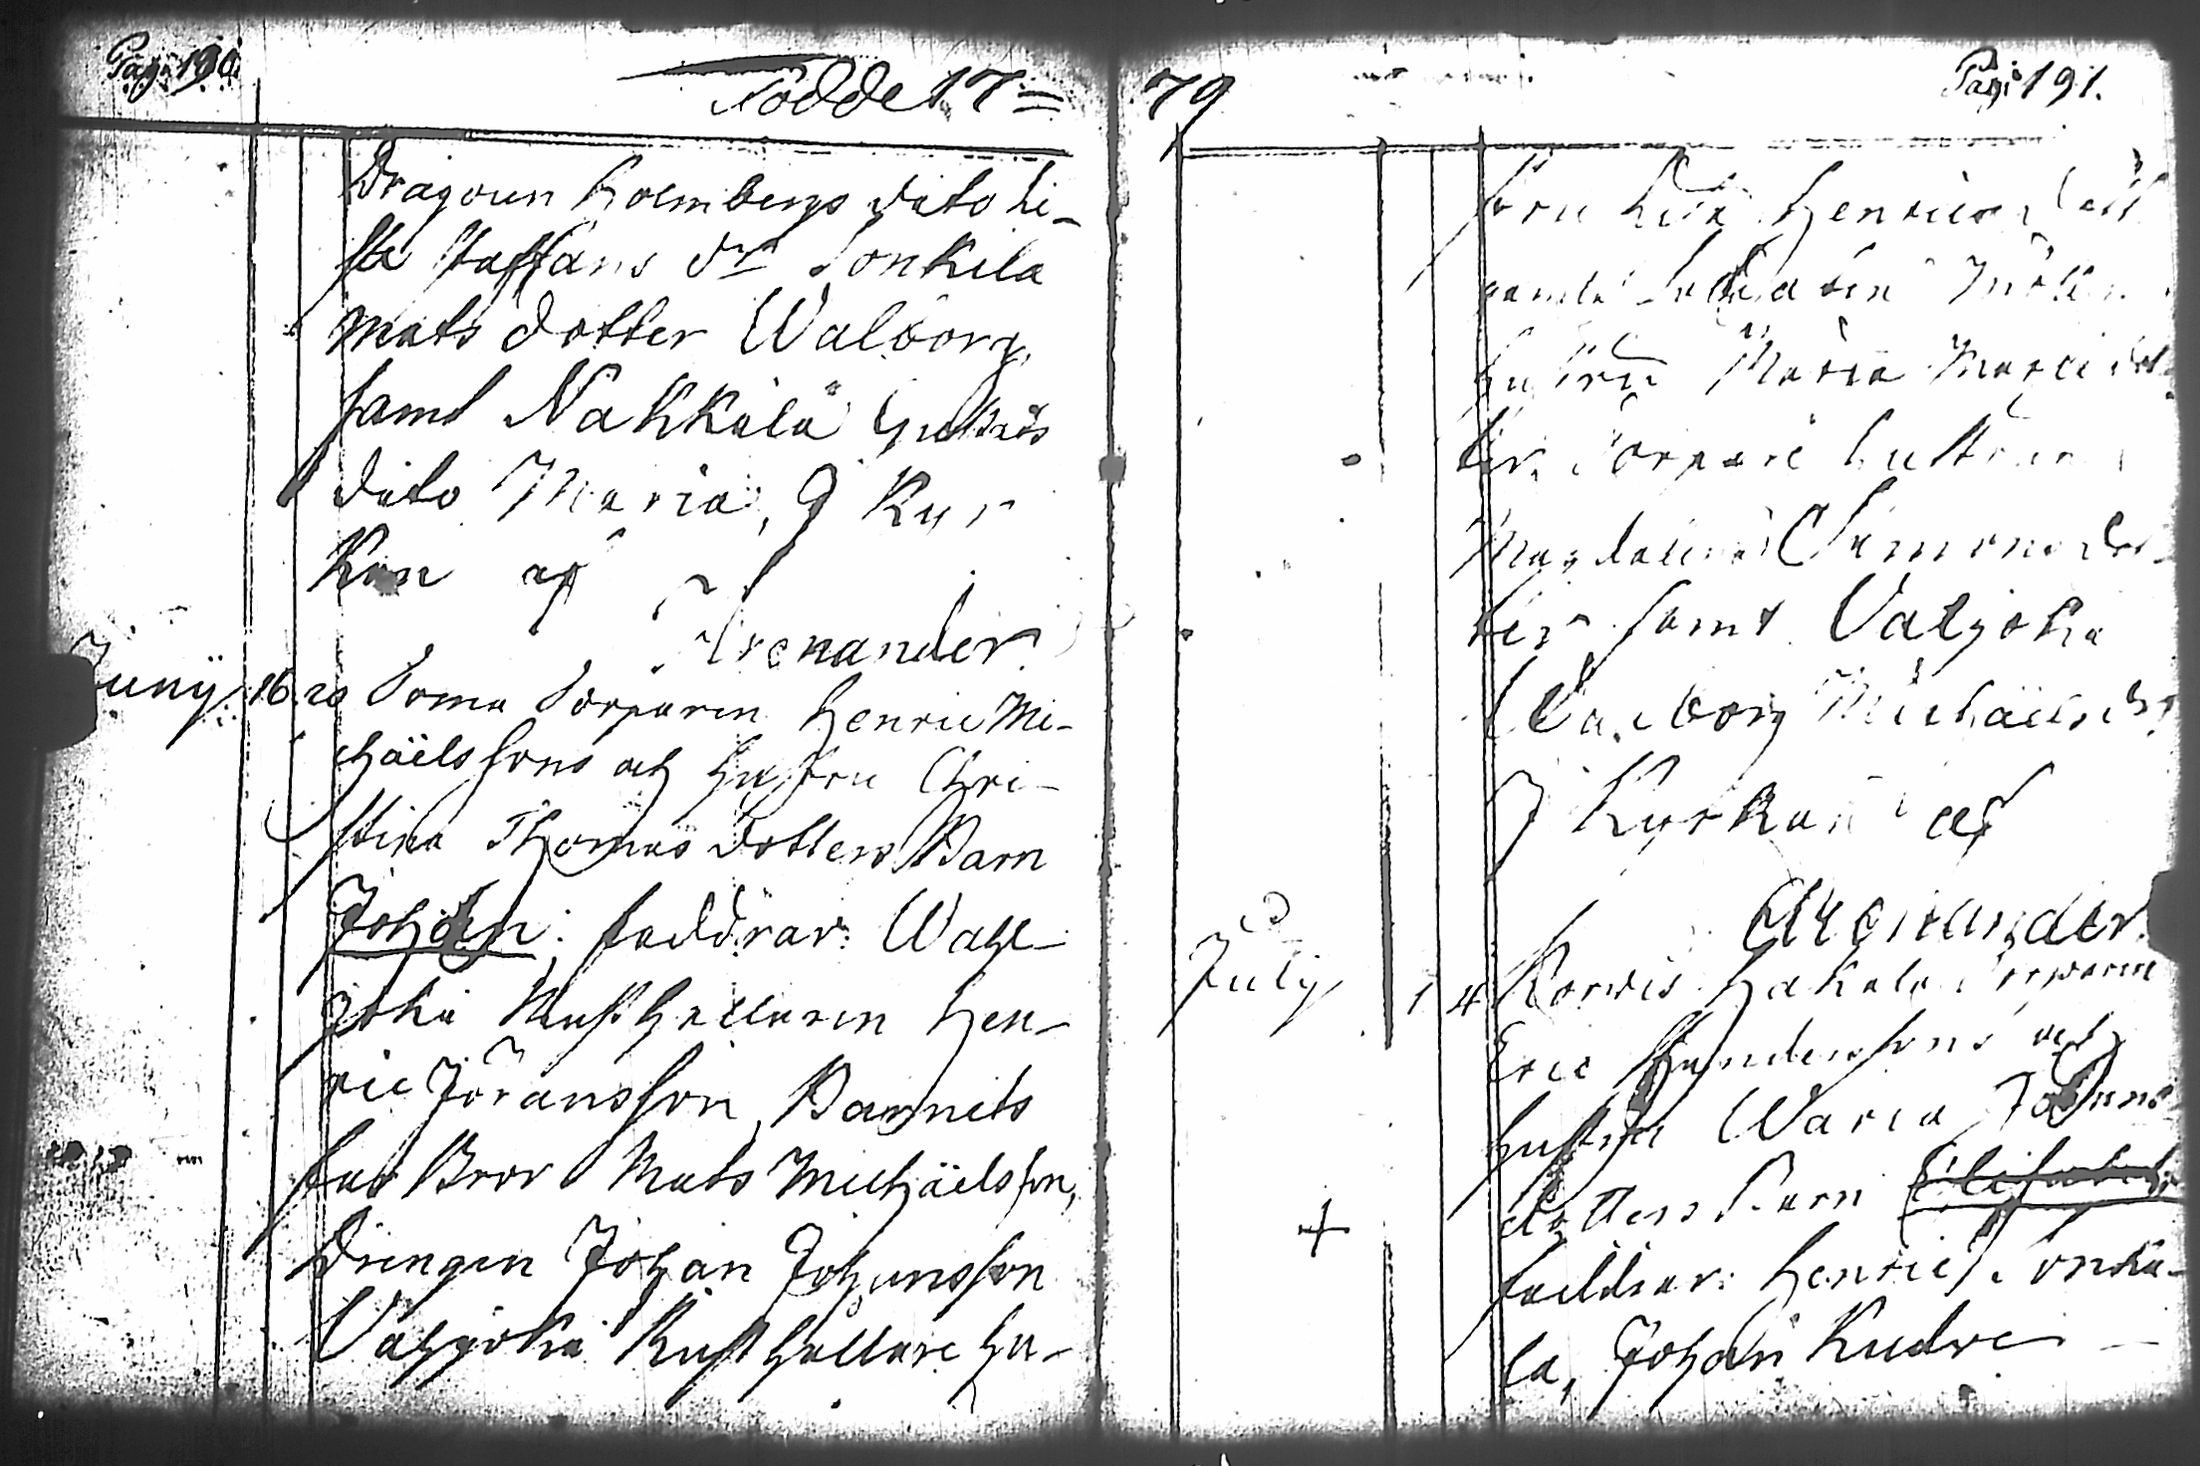 Pag: 190
Födde 17=
Dragoun Holmbergs dito Li-
sa Staffans dr Sonkila
Mats dotter Walborg,
samt Nakkila Gustafs
dito Maria, J Kyr
kan af
Arenander.
Juny 16 20 Soma Torparen Henric Mi-
chäels sons och hustru Chri-
stina Thomas dotters Barn
Johan; faddrar: Wahl-
joki Rusthållaren Hen-
ric Jöransson, Barnets
far Bror Mats Michäelsson,
Drengen Johan Johansson
Valjoki Rusthållare hu-
79
Pag: 191.
stru Henrics dott
hustru Maria
ter, Torpare hustrun
Magdalena Simons dot-
ter samt Valjoki
Walborg Michäels dr
J Kyrkan af
Arenander.
July 1 4 Korvis Hakala Torparen
Eric hustru Maria Johans
dotters Barn Elisabeth
+
faddrar: Henric Sonki-
la, Johan